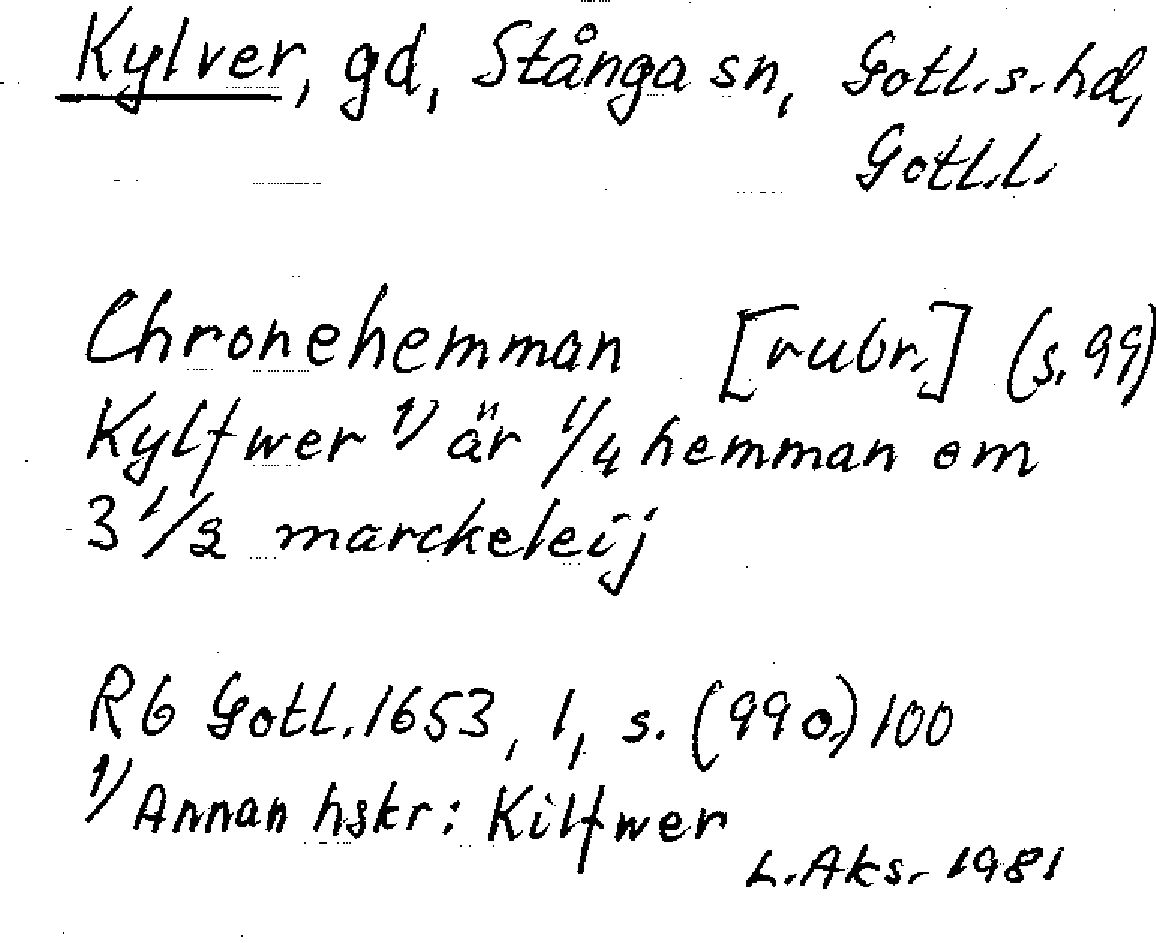 Kylver, gd, Stånga sn, Gotl.s.hd,
Gotl.l.
Chronehemman [rubr.] (s. 99)
Kylfwer 1) är 1/4 hemman om
3 1/2 marckeleij
RG Gotl. 1653, 1, s. (99 o.) 100
1) Annan hskr: Kilfwer
L. Aks. 1981